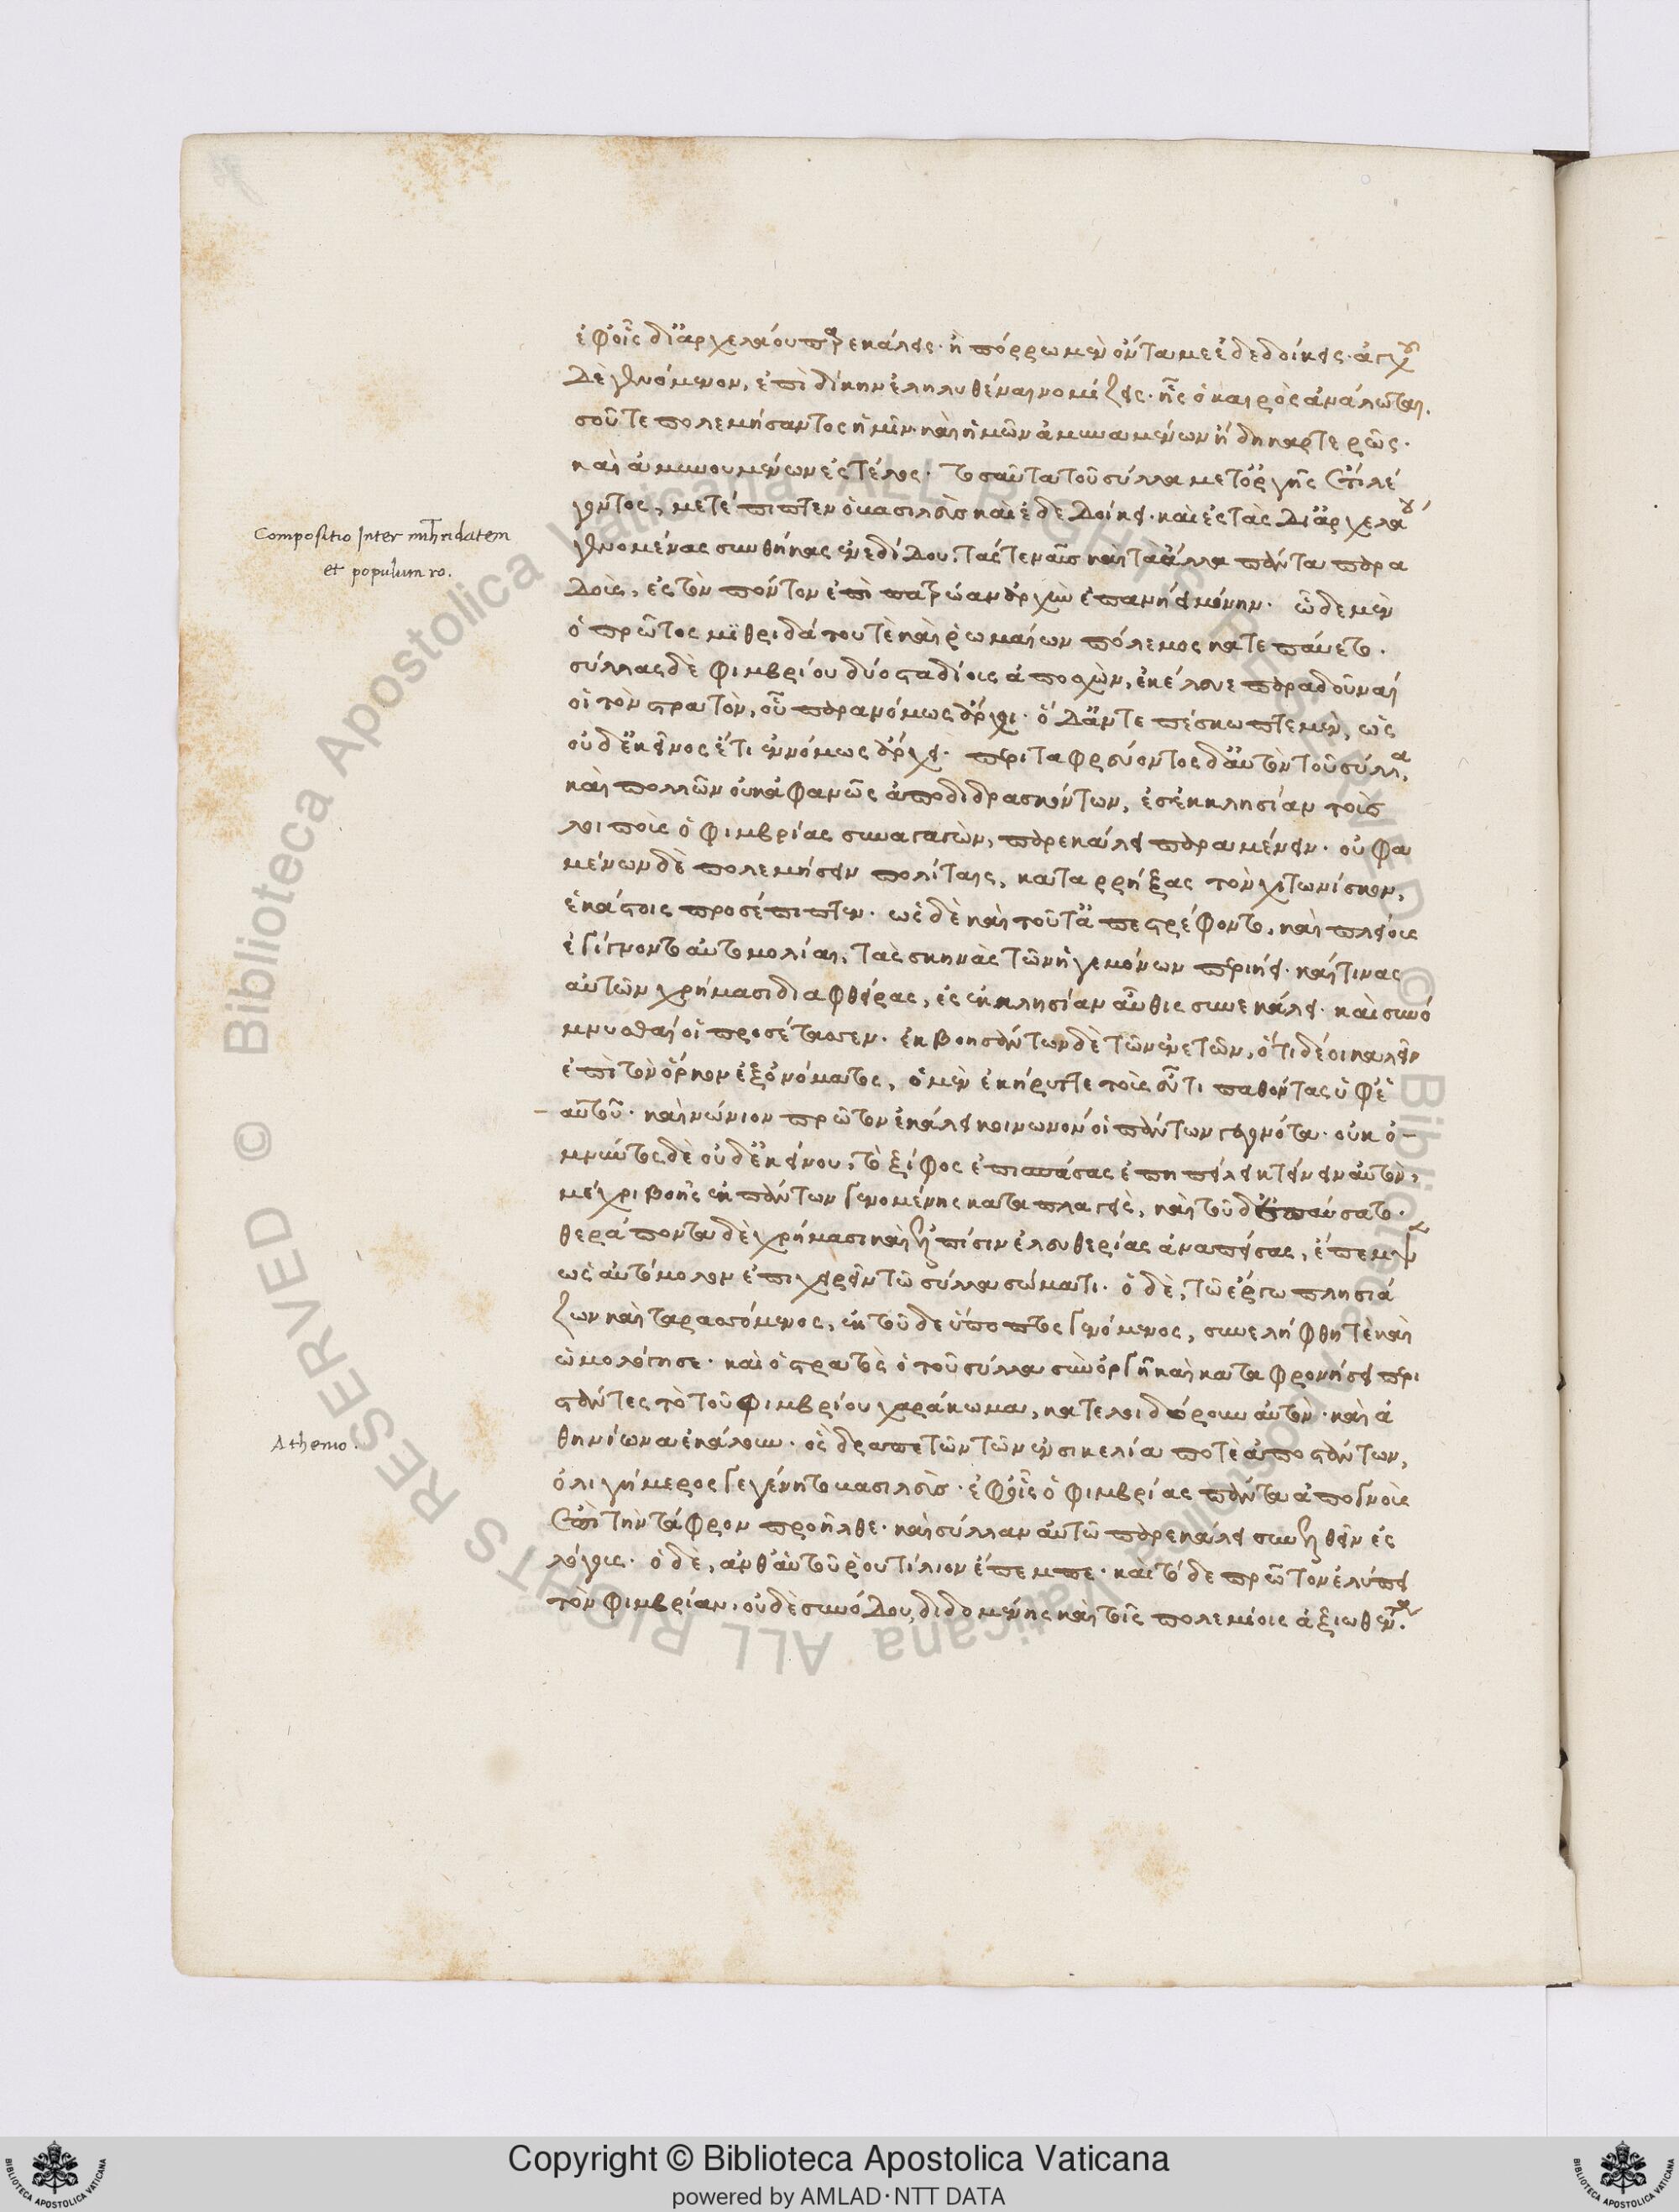 ἐφ' οἷς δι' ἀρχελάου παρεκάλεις. ἢ πόρρω μὲν ὄντα με ἐδεδοίκεις. ἀγχοῦ
δὲ γενόμενον, ἐπὶ δίκην ἐληλυθέναι νομίζεις. ἧς ὁ καιρὸς ἀνάλωται.
σοῦ τε πολεμήσαντος ἡμῖν. καὶ ἡμῶν ἀμυναμένων ἤδη καρτερῶς.
καὶ ἀμυνουμένων ἐς τέλος. τοσαῦτα τοῦ σύλλα μετ' ὀργῆς ἔτι λέ
γοντος, μετέπιπτεν ὁ βασιλεὺς καὶ ἐδεδοίκει. καὶ ἐς τὰς δι' ἀρχελάου
Compositio Inter mithridatem
et populum ro.
γενομένας συνθήκας ἐνεδίδου. τάς τε ναῦς καὶ τὰ ἄλλα πάντα παρα
δοὺς, ἐς τὸν πόντον ἐπὶ πατρώαν ἀρχὴν ἐπανῄει μόνην. ὧδε μὲν
ὁ πρῶτος μιθριδάτου τὲ καὶ ῥωμαίων πόλεμος κατεπαύετο.
σύλλας δὲ φιμβρίου δύο σταδίοις ἀποσχὼν, ἐκέλευε παραδοῦναί
οἱ τὸν στρατὸν, οὗ παρανόμως ἄρχοι. ὁ δ' ἀντεπέσκωπτε μὲν, ὡς
οὐδ' ἐκεῖνος ἔτι ἐννόμως ἄρχει. περιταφρεύοντος δ' αὐτὸν τοῦ σύλλα.
καὶ πολλῶν οὐκ ἀφανῶς ἀποδιδρασκόντων, ἐς ἐκκλησίαν τοὺς
λοιποὺς ὁ φιμβρίας συναγαγὼν, παρεκάλει παραμένειν. οὐ φα
μένων δὲ πολεμήσειν πολίταις, καταρρήξας τὸν χιτωνίσκον,
ἑκάστοις προσέπιπτεν. ὡς δὲ καὶ τοῦτ' ἀπεστρέφοντο, καὶ πλείους
ἐγίγνοντο αὐτομολίαι, τὰς σκηνὰς τῶν ἡγεμόνων περιῄει. καί τινας
αὐτῶν χρήμασι διαφθείρας, ἐς ἐκκλησίαν αὖθις συνεκάλει. καὶ συνό
μνυσθαί οἱ προσέτασσεν. ἐκβοησάντων δὲ τῶν ἐνετῶν, ὅτι δέοι καλεῖν
ἐπὶ τὸν ὅρκον ἐξ ὀνόματος, ὁ μὲν ἐκήρυττε τοὺς εὖ τι παθόντας ὑφ' ἑ
αυτοῦ. καὶ νώνιον πρῶτον ἐκάλει κοινωνόν οἱ πάντων γεγονότα. οὐκ ὀ-
μνύντος δὲ οὐδ' ἐκείνου, τὸ ξίφος ἐπισπάσας ἐπηπείλει κτενεῖν αὐτὸν,
μέχρι βοῆς ἐκ πάντων γενομένης καταπλαγεὶς, καὶ τοῦδ' ἐπαύσατο.
θεράποντα δὲ χρήμασι καὶ ἐπ' ἐλπίσιν ἐλευθερίας ἀναπείσας, ἔπεμψεν
ὡς αὐτόμολον ἐπιχειρεῖν τῷ σύλλα σώματι. ὁ δὲ, τῷ ἔργῳ πλησιά
ζων καὶ ταρασσόμενος, ἐκ τοῦδε ὕποπτος γενόμενος, συνελήφθη τὲ καὶ
ὡμολόγησε. καὶ ὁ στρατὸς ὁ τοῦ σύλλα σὺν ὀργῇ καὶ καταφρονήσει περι
στάντες τὸ τοῦ φιμβρίου χαράκωμα, κατελοιδόρουν αὐτὸν. καὶ ἀ
Athenio.
θηνίωνα ἐκάλουν. ὃς δραπετῶν τῶν ἐν σικελίᾳ ποτὲ ἀποστάντων,
ὀλιγήμερος γεγένητο βασιλεύς. ἐφ' οἷς ὁ φιμβρίας πάντα ἀπογνοὺς
ἐπὶ τὴν τάφρον προῆλθε. καὶ σύλλαν αὐτῷ παρεκάλει συνελθεῖν ἐς
λόγους. ὁ δὲ, ἀνθ' αὑτοῦ ῥουτίλιον ἔπεμπε. καὶ τόδε πρῶτον ἐλύπει
τὸν φιμβρίαν. οὐδὲ συνόδου, διδομένης καὶ τοῖς πολεμίοις ἀξιωθέντα.